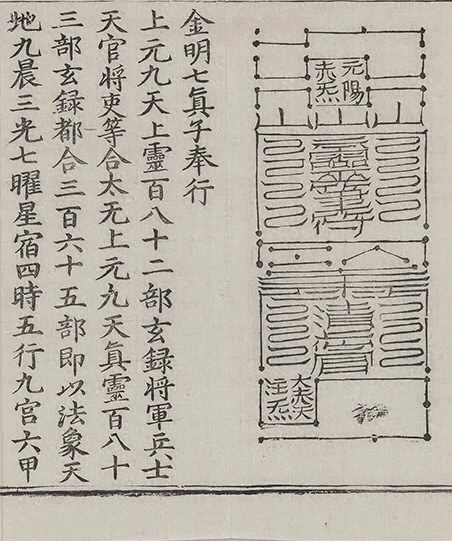 元陽
赤炁
大赤天
炁
金明七眞子奉行
上元九天上靈百八十二部玄録將軍兵士
天官將吏等合太无上元九天眞靈百八十
三部玄録都合三百六十五部即以法象天
地九晨三光七曜星宿四時五行九宮六甲